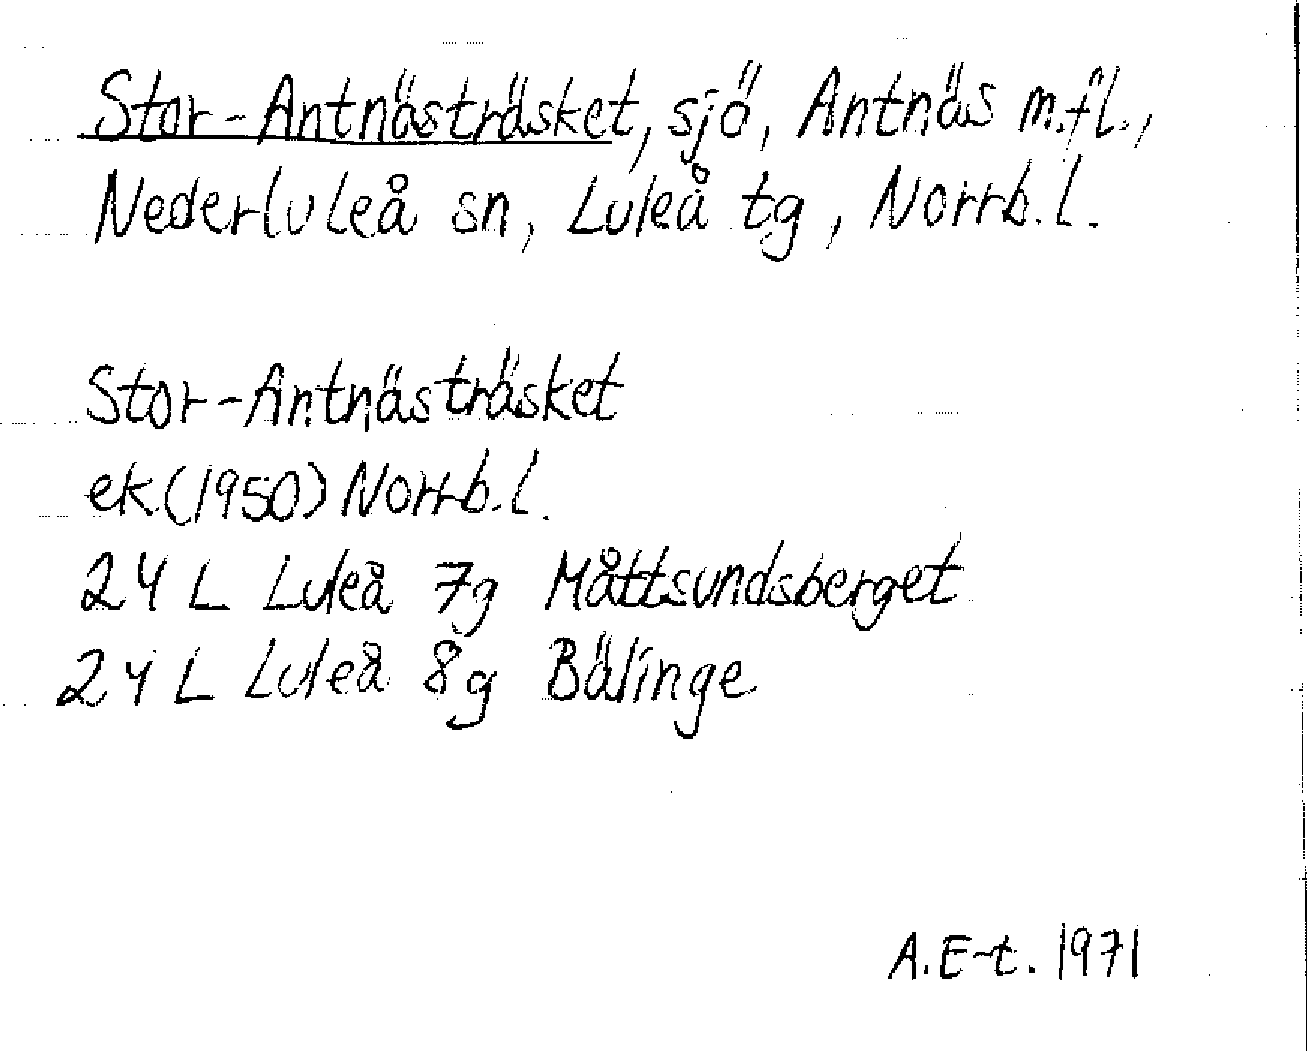 Stor-Antnästräsket, sjö, Antnäs m.fl.,
Nederluleå sn, Luleå tg, Norrb.l.
Stor-Antnästräsket
ek(1950) Norrb.l.
24 L Luleå 7g Måttsundsberget
24 L Luleå 8g Bälinge
A.E-t. 1971